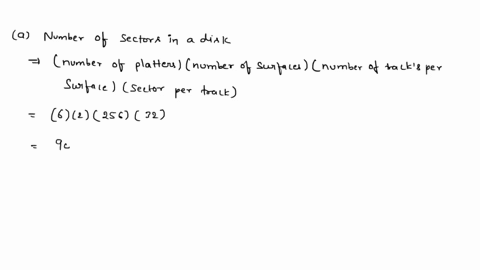 (a) Number of sectors in a disk
⇒ (number of platters) (number of surfaces) (number of track's per
surface) (sector per track)
= (6) (2) (256) (32)
= 9c